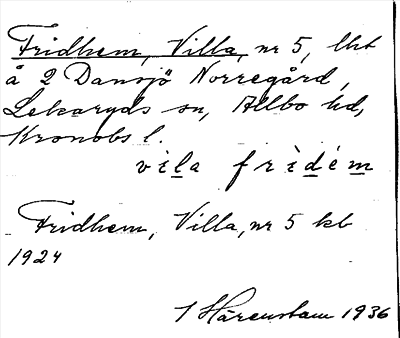 Fridhem, Villa, nr 5, lht
å 2 Dansjö Norregård,
Lekaryds sn, Allbo hd,
Kronobs l.
vìla frìdém
Fridhem, Villa, nr 5 kb
1924
1 Härenstam 1936